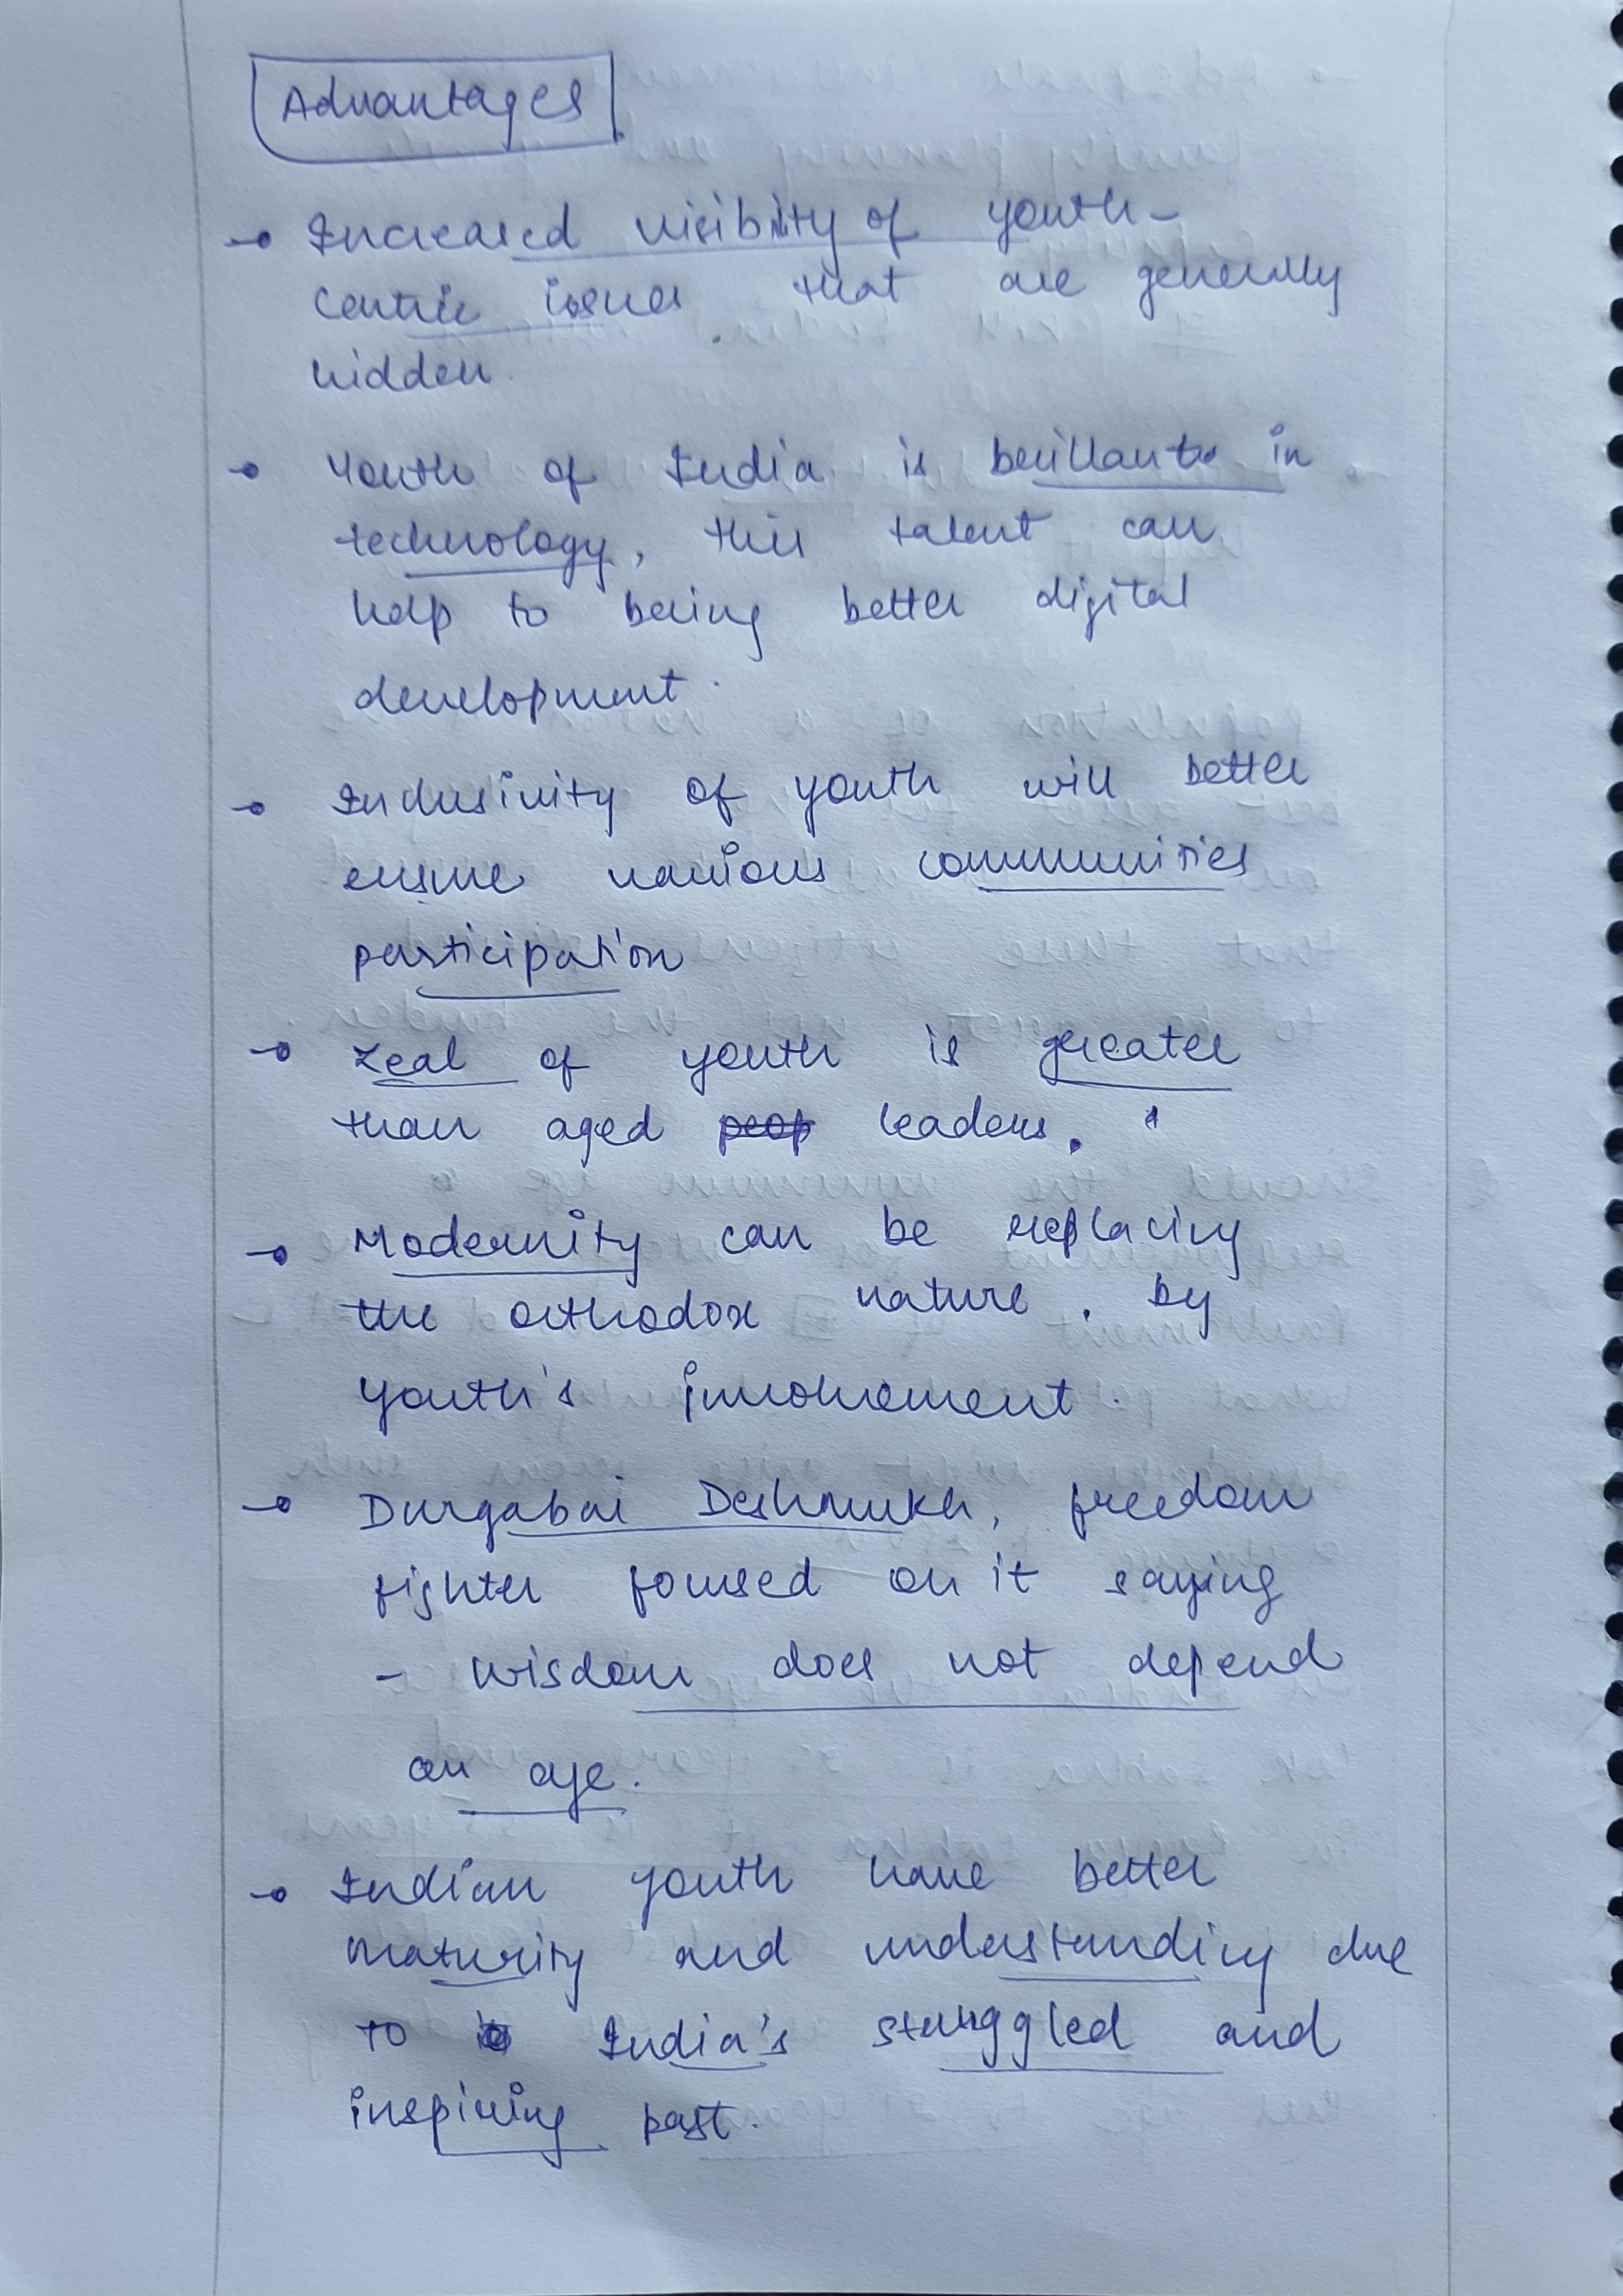 Advantages
Increased visibility of youth-
centric issues that are generally
hidden.
Youth of India is brilliant in
technology, this talent can
help to bring better digital
development.
Inclusivity of youth will better
ensure various communities
participation
Zeal of youth is greater
than aged peop leaders.
Modernity can be replacing
the orthodox nature. by
youth's involvement.
Durgabai Deshmukh, freedom
fighter focused on it saying
- Wisdom does not depend
on age.
Indian youth have better
maturity and understanding due
to India's struggled and
inspiring past.